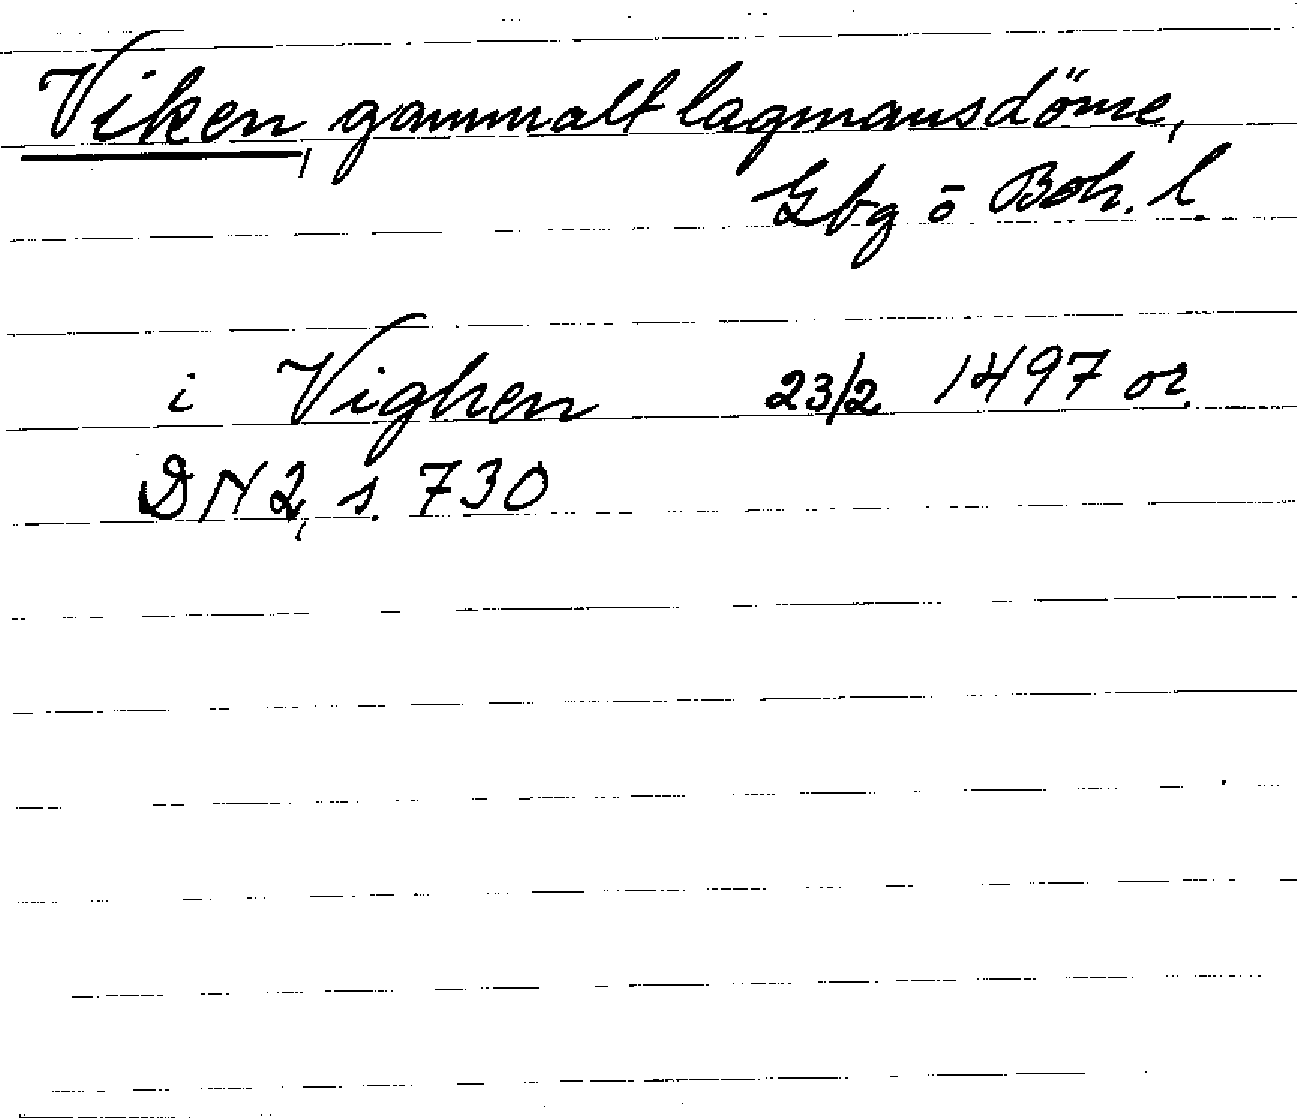 Viken, gammalt lagmansdöme,
Gbg o Boh. l.
i Vighen 23/2 1497 or.
DN 2, s. 730